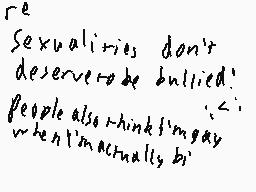 re
sexualities don't
deserve to be bullied!
:<:
People also think I'm gay
when I'm actually bi